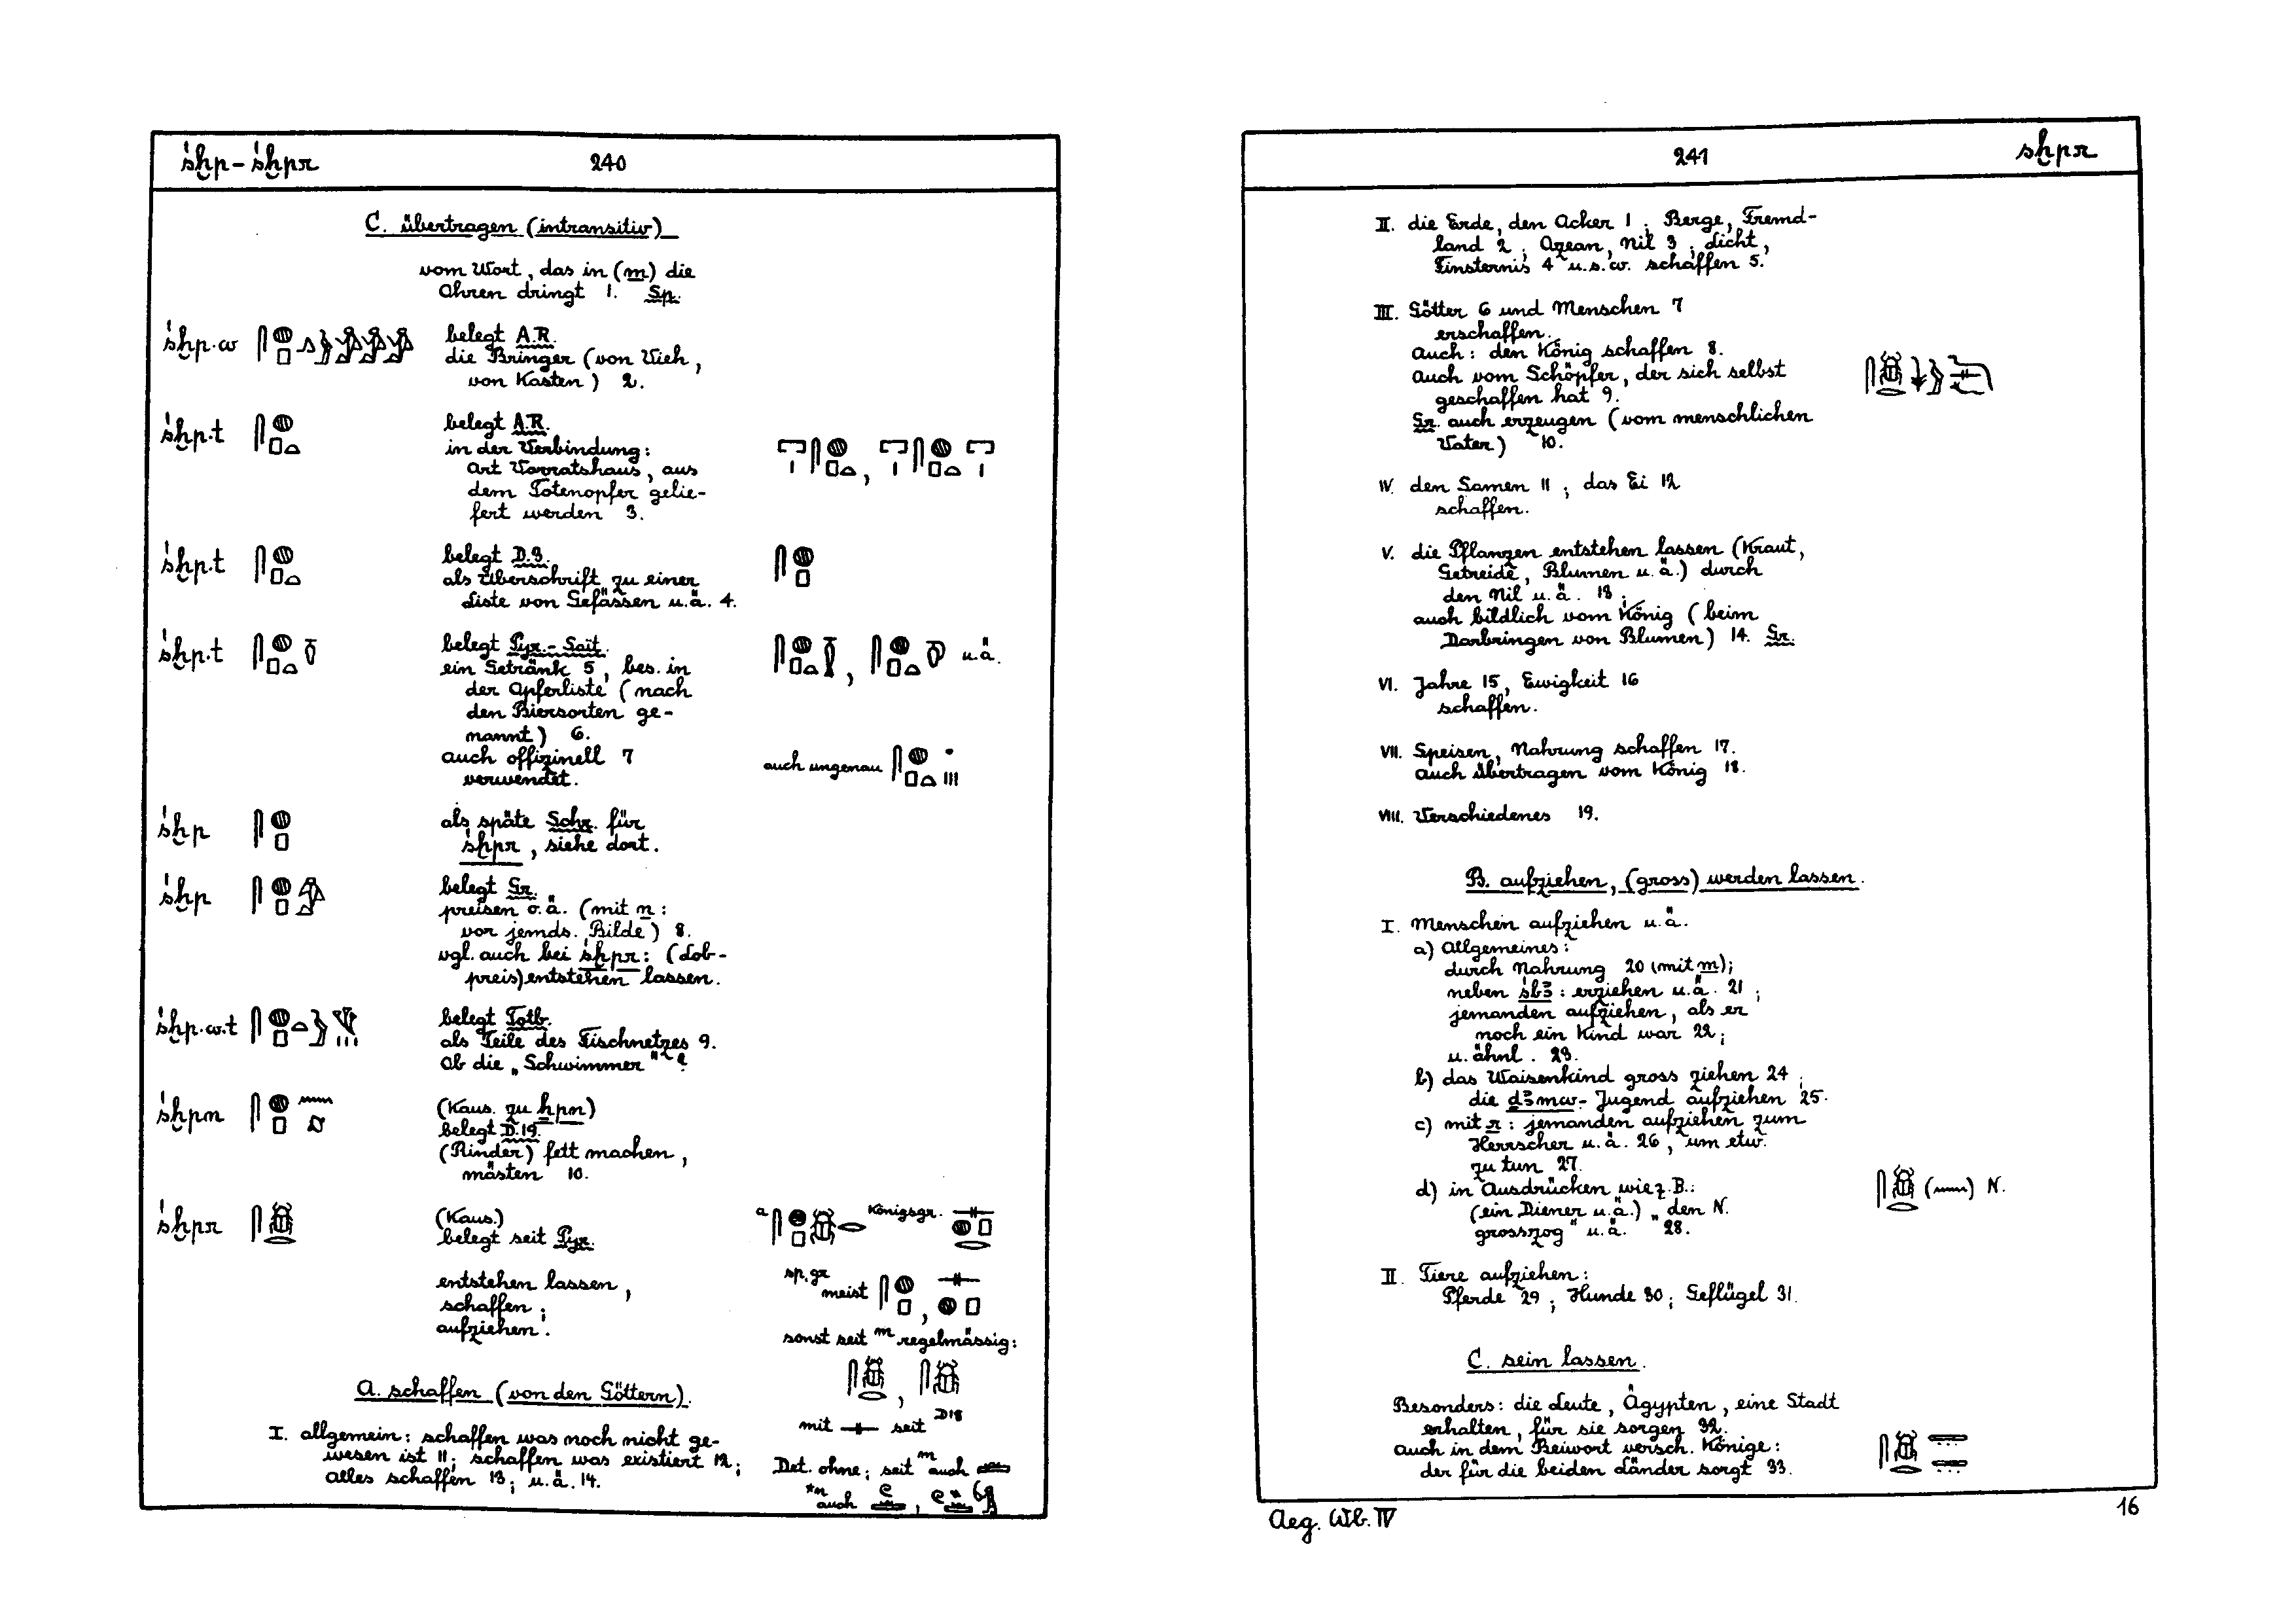 śḫp – śḫpr
240
C. übertragen (intransitiv)
vom Wort, das in (m) die
Ohren dringt 1. Sp.
śḫp.w
belegt A.R.
die Bringer (von Vieh,
von Kasten) 2.
śḫp.t
belegt A.R.
in der Verbindung:
Art Vorratshaus, aus
dem Totenopfer gelie-
fert werden 3.
śḫp.t
belegt D.3.
als Überschrift zu einer
Liste von Gefässen u.ä. 4.
śḫp.t
belegt Pyr. - Sait.
u.ä.
ein Getränk 5, bes. in
der Opferliste (nach
den Biersorten ge-
nannt) 6.
auch offizinell 7
verwendet.
auch ungenau
śḫp
als späte Schr. für
śḫpr, siehe dort.
śḫp
belegt Gr.
preisen o.ä. (mit n:
vor jemds. Bilde) 8.
vgl. auch bei śḫpr: (Lob-
preis) entstehen lassen.
śḫp.w.t
belegt Totb.
als Teile des Fischnetzes 9.
Ob die „Schwimmer"?
śḫpn
(Kaus. zu ḫpn)
belegt D.19.
(Rinder) fett machen,
mästen 10.
śḫpr
(Kaus.)
belegt seit Pyr.
a
Königsgr.
entstehen lassen,
schaffen;
aufziehen.
sp. gr
meist
sonst seit m regelmässig:
mit seit D18
Det. ohne; seit m auch
*n auch
A. schaffen (von den Göttern).
I. allgemein: schaffen was noch nicht ge-
wesen ist 11; schaffen was existiert 12;
alles schaffen 13; u.ä. 14.
241
śḫpr
II. die Erde, den Acker 1; Berge, Fremd-
land 2; Ozean, Nil 3; Licht,
Finsternis 4 u.s.w. schaffen 5.
III. Götter 6 und Menschen 7
erschaffen.
Auch: den König schaffen 8.
Auch vom Schöpfer, der sich selbst
geschaffen hat 9.
Gr. auch erzeugen (vom menschlichen
Vater) 10.
IV. den Samen 11; das Ei 12
schaffen.
V. die Pflanzen entstehen lassen (Kraut,
Getreide, Blumen u.ä.) durch
den Nil u.ä. 13;
auch bildlich vom König (beim
Darbringen von Blumen) 14. Gr.
VI. Jahre 15, Ewigkeit 16
schaffen.
VII. Speisen, Nahrung schaffen 17.
auch übertragen vom König 18.
VIII. Verschiedenes 19.
B. aufziehen, (gross) werden lassen.
I. Menschen aufziehen u.ä.
a) Allgemeines:
durch Nahrung 20 (mit m);
neben śbꜣ: erziehen u.ä. 21;
jemanden aufziehen, als er
noch ein Kind war 22;
u. ähnl. 23.
b) das Waisenkind gross ziehen 24;
die dꜣmw- Jugend aufziehen 25.
c) mit r: jemanden aufziehen zum
Herrscher u.ä. 26, um etw.
zu tun 27.
d) in Ausdrücken wie z.B.:
(ein Diener u.ä.) „den N.
grosszog" u.ä. 28.
( ) N.
II. Tiere aufziehen:
Pferde 29; Hunde 30; Geflügel 31.
C. sein lassen.
Besonders: die Leute, Ägypten, eine Stadt
erhalten, für sie sorgen 32.
auch in dem Beiwort versch. Könige:
der für die beiden Länder sorgt 33.
Aeg. Wb. IV
16